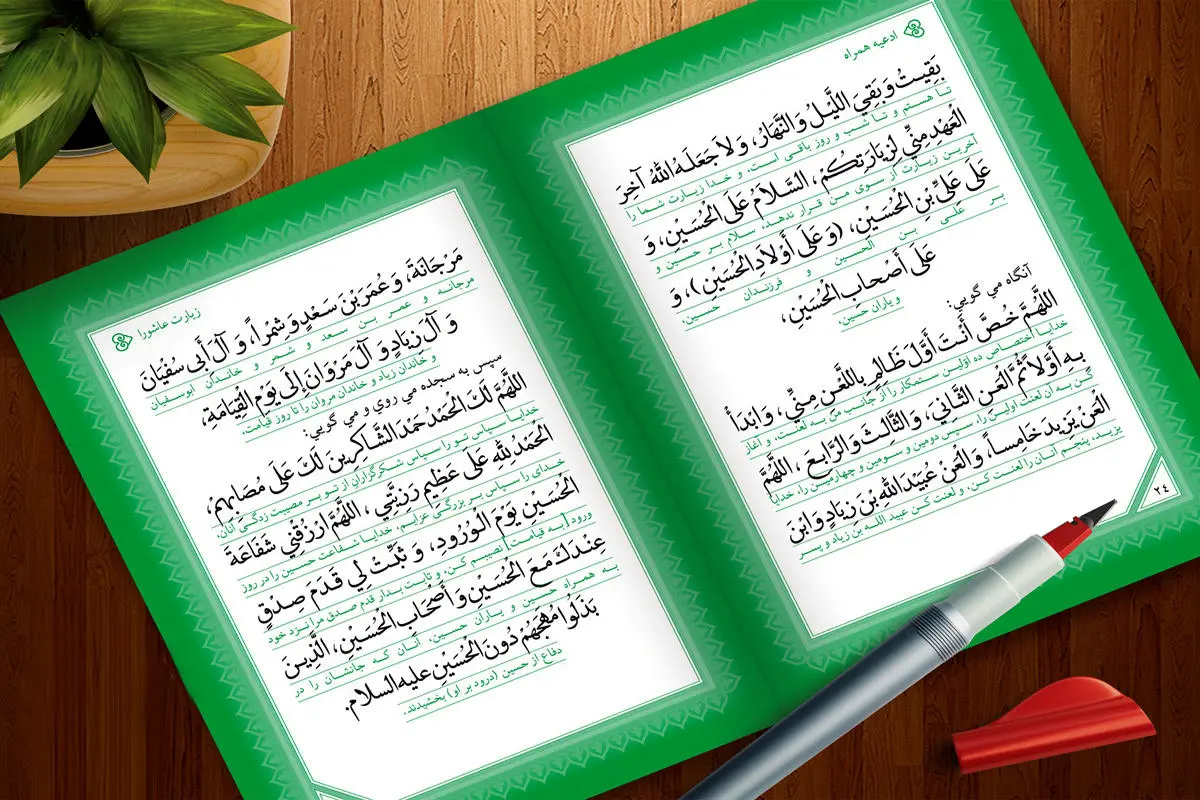 ادعیه همراه
بَقِيتُ وَ بَقِيَ اللَّيْلُ وَ النَّهَارُ، وَ لاَ جَعَلَهُ اللَّهُ آخِرَ
تا هستم و تا شب و روز باقی است، و خدا زیارت شما را
الْعَهْدِ مِنِّي لِزِيَارَتِكُمْ، السَّلاَمُ عَلَى الْحُسَيْنِ، وَ
آخرین زیارت از سوی من قرار ندهد، سلام بر حسین و
عَلَى عَلِيِّ بْنِ الْحُسَيْنِ، (وَ عَلَى أَوْلاَدِ الْحُسَيْنِ)، وَ
بر علی بن الحسین و فرزندان حسین،
عَلَى أَصْحَابِ الْحُسَيْنِ،
و یاران حسین.
آنگاه می گویی:
اللَّهُمَّ خُصَّ أَنْتَ أَوَّلَ ظَالِمٍ بِاللَّعْنِ مِنِّي، وَ ابْدَأْ
خدایا اختصاص ده اوّلین ستمکار را از جانب من به لعنت، و آغاز
بِهِ أَوَّلاً ثُمَّ الْعَنِ الثَّانِيَ، وَ الثَّالِثَ وَ الرَّابِعَ، اللَّهُمَّ
کن به آن لعنت اولین را، سپس دومین و سومین و چهارمین را، خدایا
الْعَنْ يَزِيدَ خَامِساً، وَ الْعَنْ عُبَيْدَ اللَّهِ بْنَ زِيَادٍ وَ ابْنَ
یزید، پنجم آنان را لعنت کن، و لعنت کن عبید اللـه بن زیاد و پسر
٢٤
زیارت عاشورا
مَرْجَانَةَ، وَ عُمَرَ بْنَ سَعْدٍ وَ شِمْراً، وَ آلَ أَبِي سُفْيَانَ
مرجانـه و عمر بن سعد و شمر و خاندان ابوسفیان
وَ آلَ زِيَادٍ وَ آلَ مَرْوَانَ إِلَى يَوْمِ الْقِيَامَةِ،
و خاندان زیاد و خاندان مروان را تا روز قیامت.
سپس به سجده می روی و می گویی:
اللَّهُمَّ لَكَ الْحَمْدُ حَمْدَ الشَّاكِرِينَ لَكَ عَلَى مُصَابِهِمْ،
خدایا سپاس تو را سپاس شکرگزاران از تو بر مصیبت زدگی آنان.
الْحَمْدُ لِلَّهِ عَلَى عَظِيمِ رَزِيَّتِي، اللَّهُمَّ ارْزُقْنِي شَفَاعَةَ
خدای را سپاس بر بزرگی عزایم، خدایا شفاعت حسین را در روز
الْحُسَيْنِ يَوْمَ الْوُرُودِ، وَ ثَبِّتْ لِي قَدَمَ صِدْقٍ
ورود [به قیامت] نصیبم کن، و ثابت بدار قدم صدق مرا نزد خود
عِنْدَكَ مَعَ الْحُسَيْنِ وَ أَصْحَابِ الْحُسَيْنِ، الَّذِينَ
به همراه حسین و یاران حسین، آنان که جانشان را در
بَذَلُوا مُهَجَهُمْ دُونَ الْحُسَيْنِ عليه السلام.
دفاع از حسین (درود بر او) بخشیدند.